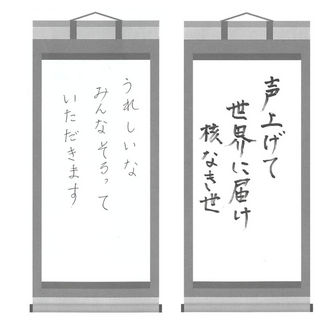 声上げて
世界に届け
核なき世
うれしいな
みんなそろって
いただきます